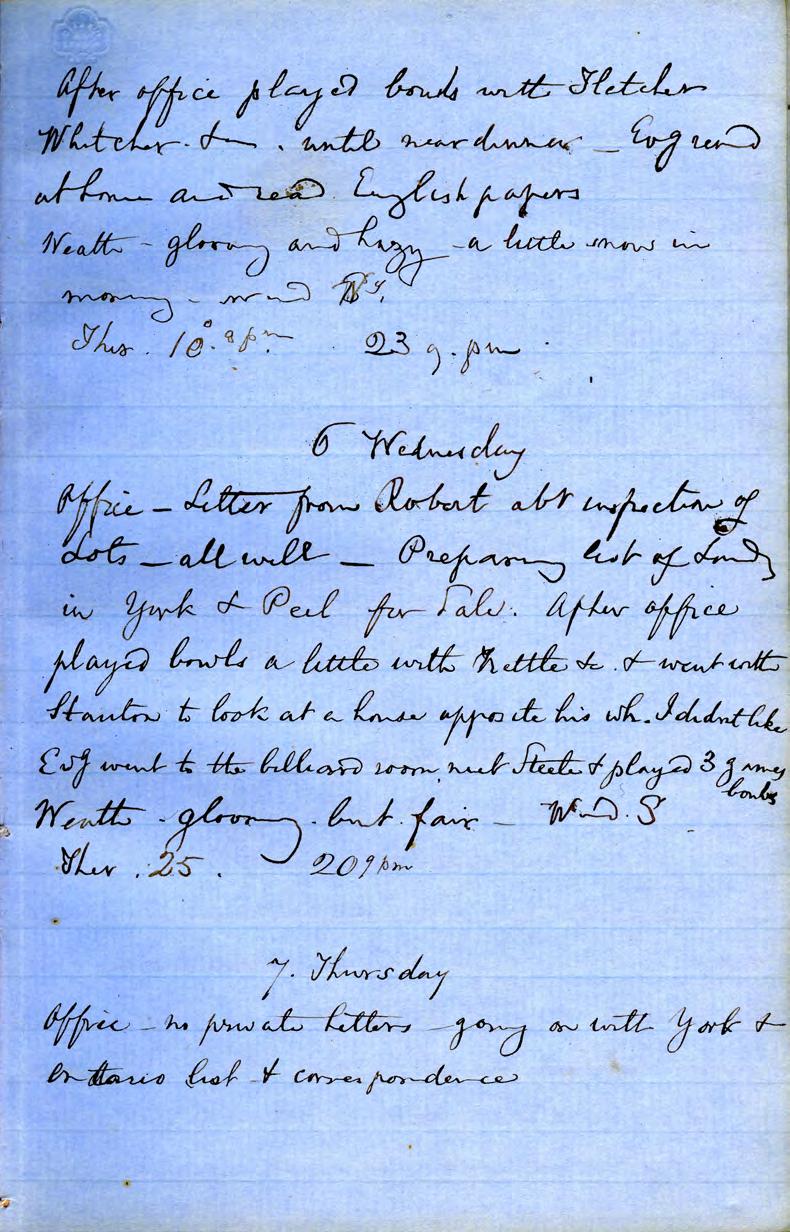 After office played bowls with Fletcher
Whitcher &c. until near dinner – Evg remd
at home and read English papers
Weath - gloomy and hazy - a little snow in
morning - wind
Ther. 10° 23 9. pm.
6 Wednesday
Office – Letter from Robert abt inspection of
Lots – all well – Preparing list of Lands
in York & Peel for Sale. After office
played bowls a little with Kettle &c. & went with
Stanton to look at a house opposite his wh. I didnt like
Evg went to the billiard room met Steele & played 3 games
bowls
Weath - gloomy - but fair – Wind. S
Ther. 25. 20 9 pm
7. Thursday
Office – no private letters – going on with York &
Ontario list & correspondence